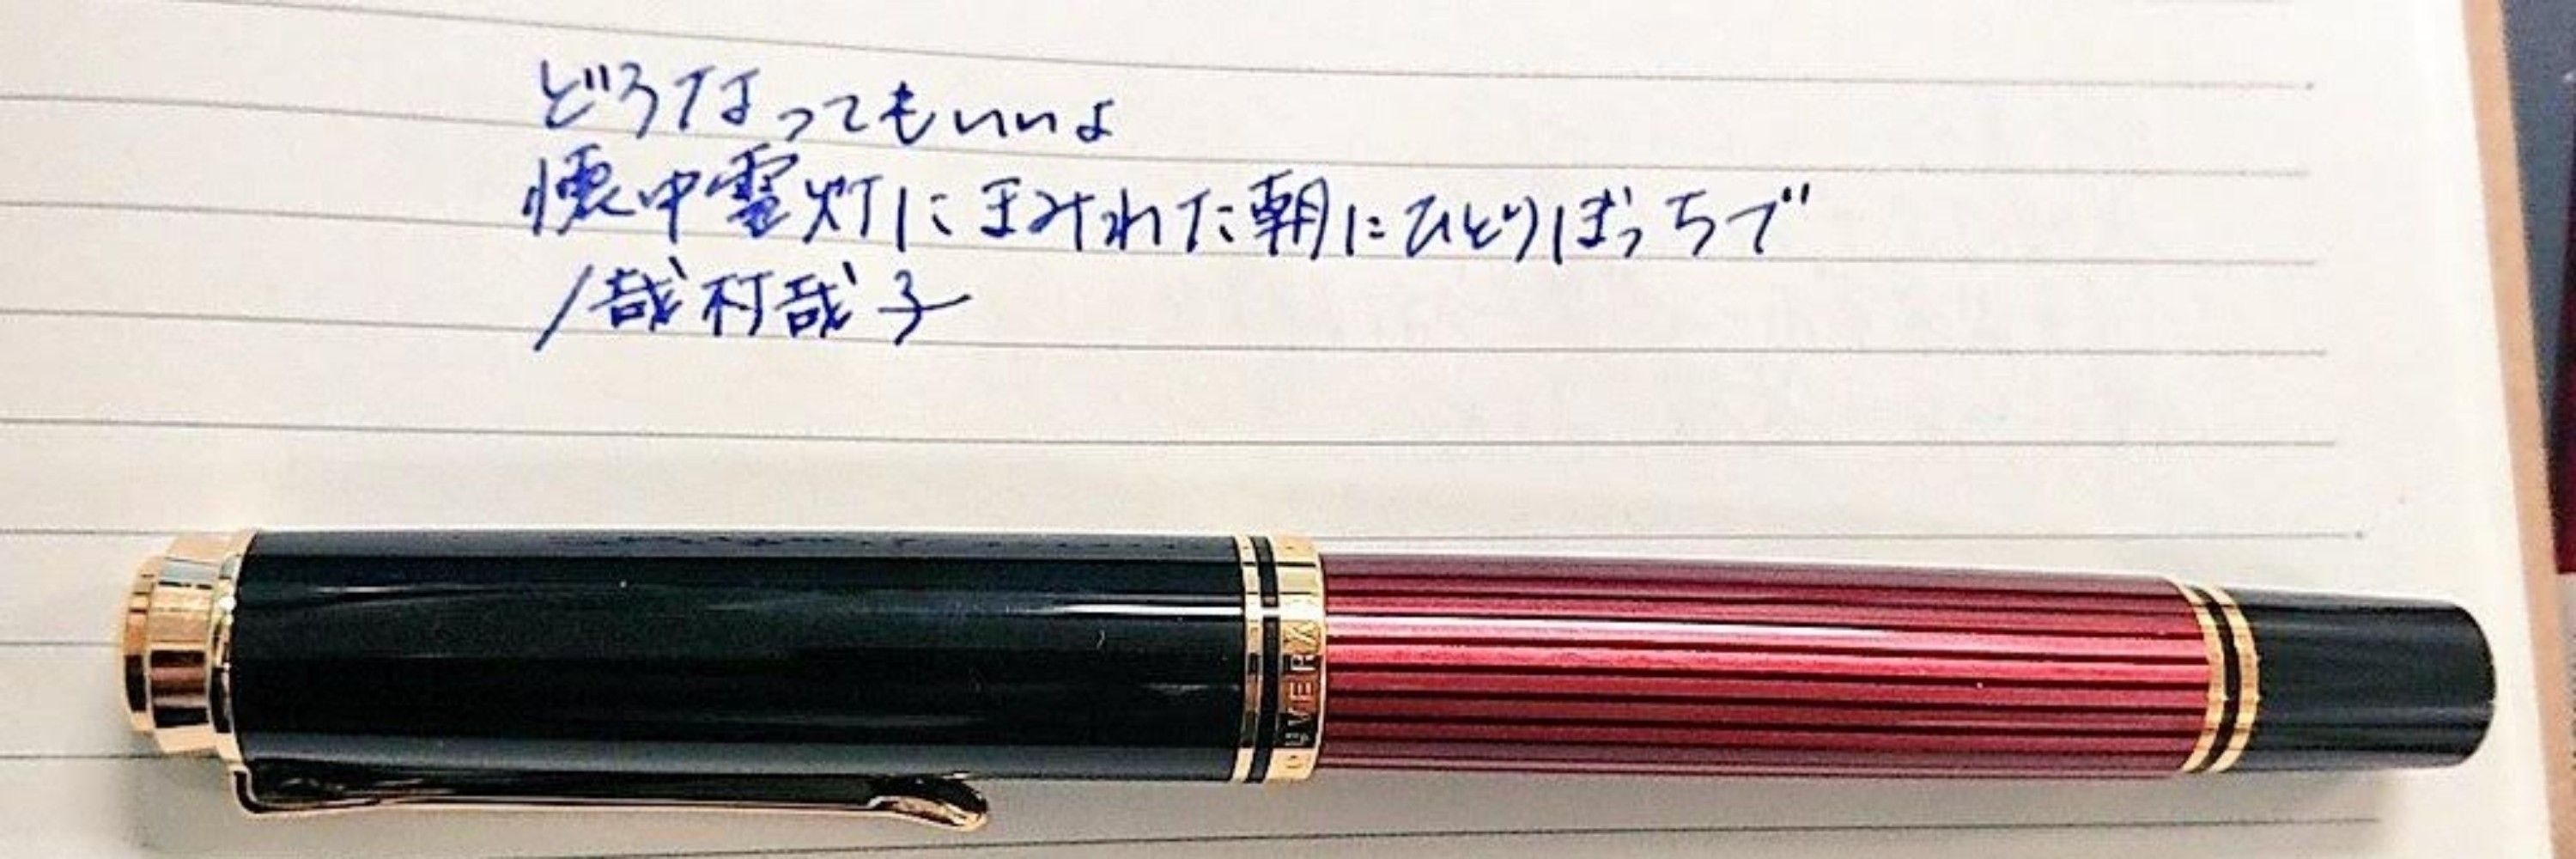 どうなってもいいよ
懐中電灯にまみれた朝にひとりぼっちで
/哉村哉子
SOUVERÄ